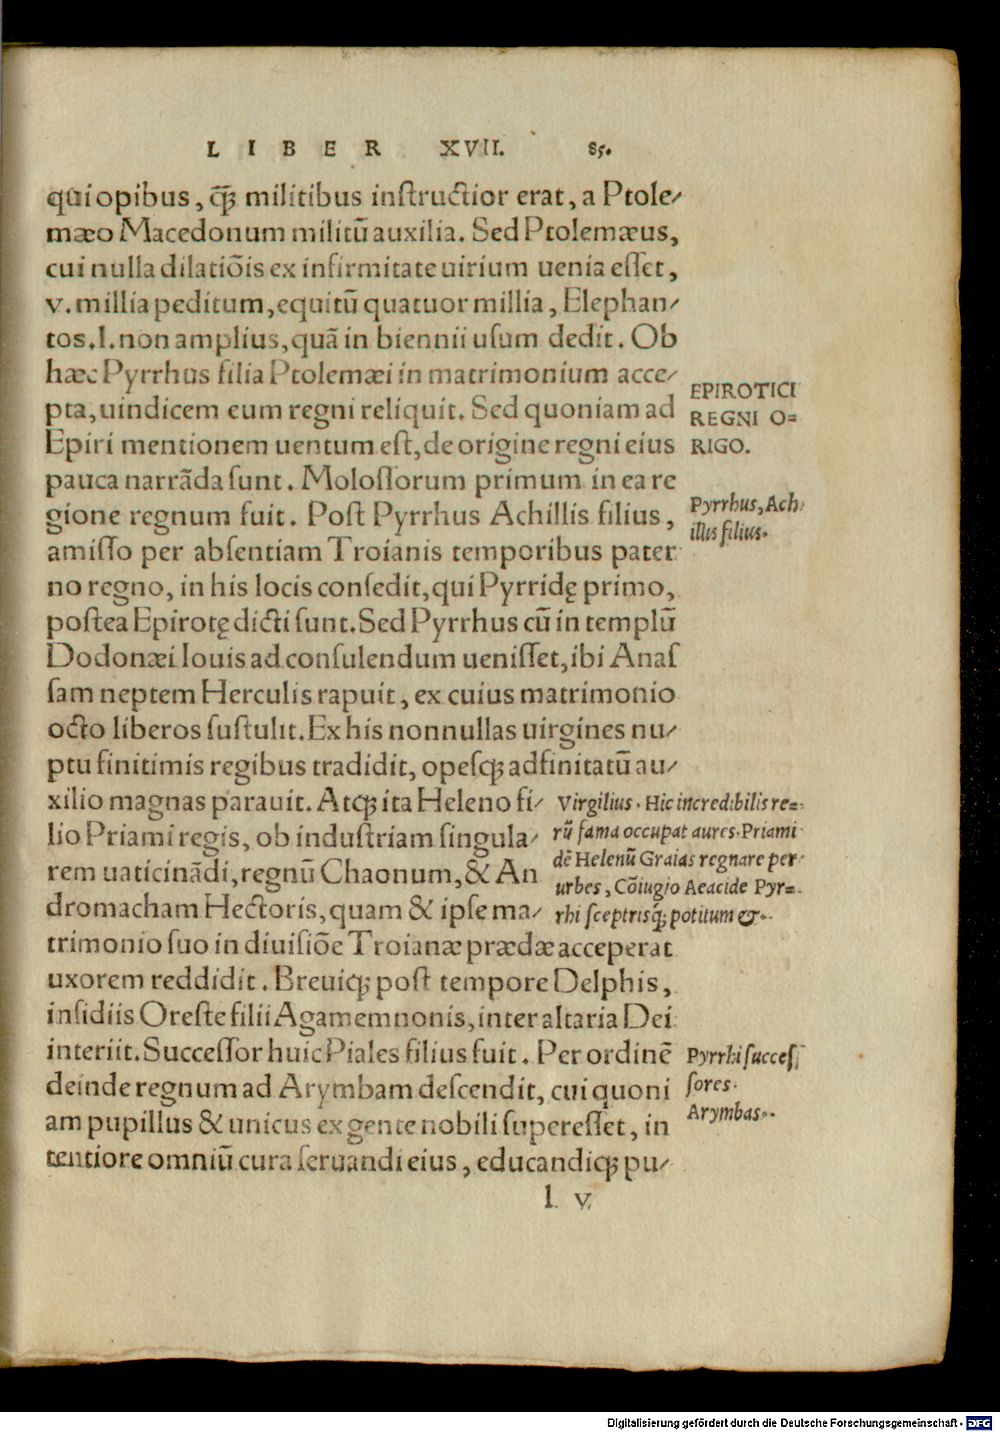 LIBER XVII. 85.
qui opibus, q̃ꝫ militibus instructior erat, a Ptole/
mæo Macedonum militũ auxilia. Sed Ptolemæus,
cui nulla dilatiõis ex infirmitate uirium uenia esset,
v. millia peditum, equitũ quatuor millia, Elephan/
tos. l. non amplius, quã in biennii usum dedit. Ob
hæc Pyrrhus filia Ptolemæi in matrimonium acce/
pta, uindicem eum regni reliquit. Sed quoniam ad
Epiri mentionem uentum est, de origine regni eius
pauca narrãda sunt. Molossorum primum in ea re
gione regnum fuit. Post Pyrrhus Achillis filius,
amisso per absentiam Troianis temporibus pater
no regno, in his locis consedit, qui Pyrridę primo,
postea Epirotę dicti sunt. Sed Pyrrhus cũ in templũ
Dodonæi Iouis ad consulendum uenisset, ibi Anas
sam neptem Herculis rapuit, ex cuius matrimonio
octo liberos sustulit. Ex his nonnullas uirgines nu/
ptu finitimis regibus tradidit, opesqꝫ adfinitatũ au/
xilio magnas parauit. Atqꝫ ita Heleno fi/
lio Priami regis, ob industriam singula/
rem uaticinãdi, regnũ Chaonum, & An
dromacham Hectoris, quam & ipse ma/
trimonio suo in diuisiõe Troianæ prædæ acceperat
uxorem reddidit. Breuiqꝫ post tempore Delphis,
insidiis Oreste filii Agamemnonis, inter altaria Dei
interiit. Successor huic Piales filius fuit. Per ordinẽ
deinde regnum ad Arymbam descendit, cui quoni
am pupillus & unicus ex gente nobili superesset, in
tentiore omniũ cura seruandi eius, educandiqꝫ pu/
l v.
EPIROTICI
REGNI O=
RIGO.
Pyrrhus, Ach
illis filius.
Virgilius. Hic incredibilis re=
rũ fama occupat aures. Priami
dẽ Helenũ Graias regnare per
urbes, Cõiugio Aeacide Pyr=
rhi sceptrisqꝫ potitum &.
Pyrrhi succes
sores.
Arymbas.
Digitalisierung gefördert durch die Deutsche Forschungsgemeinschaft - DFG